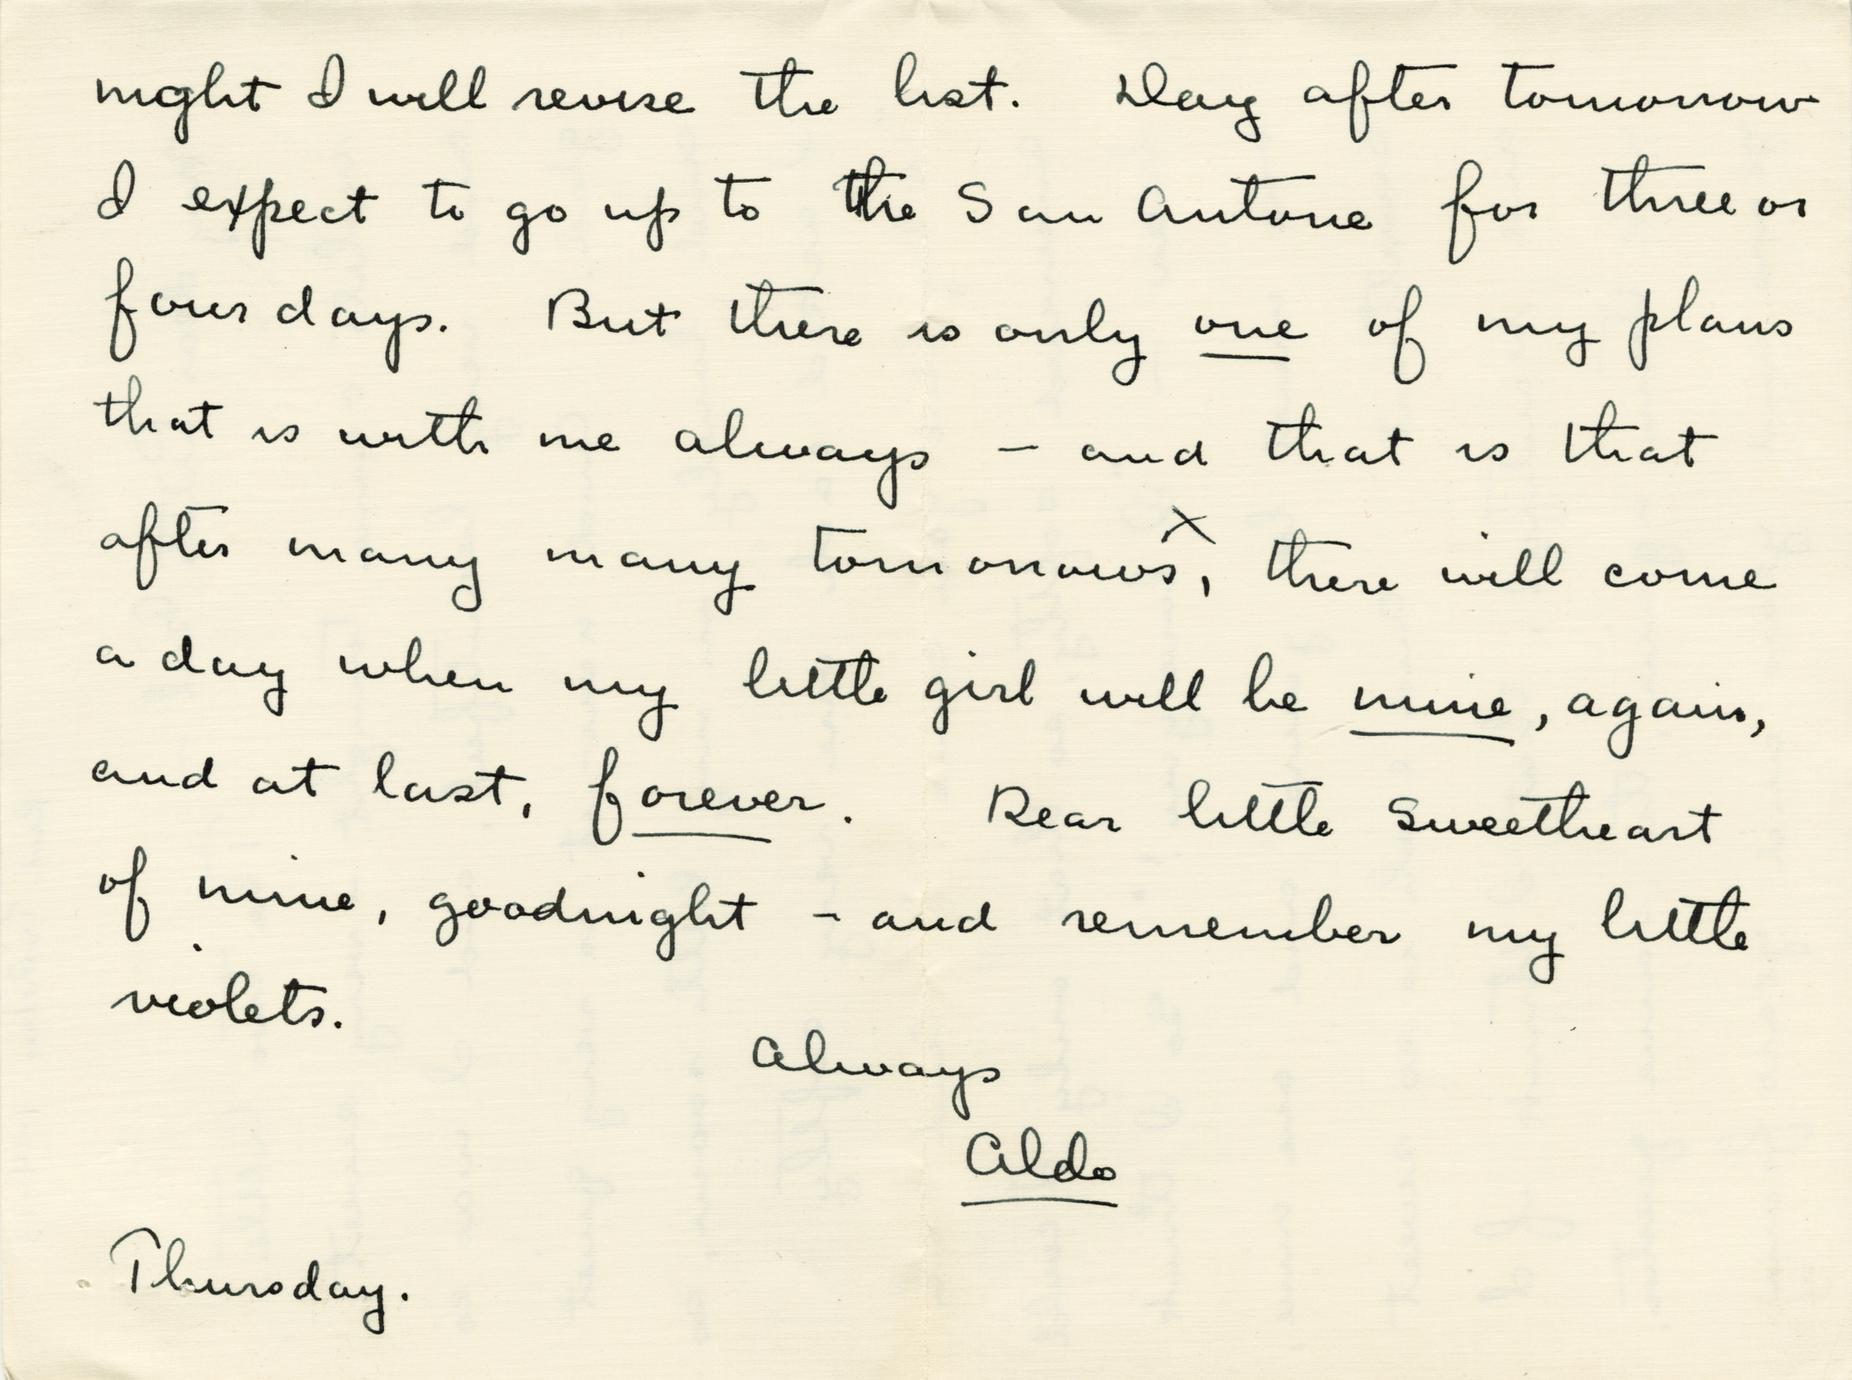 night I will revise the list. Day after tomorrow
I expect to go up to the San Antone for three or
four days. But there is only one of my plans
that is with me always – and that is that
after many many tomorrows, there will come
a day when my little girl will be mine, again,
and at last, forever. Dear little Sweetheart
of mine, goodnight – and remember my little
violets.
Always
Aldo
Thursday.